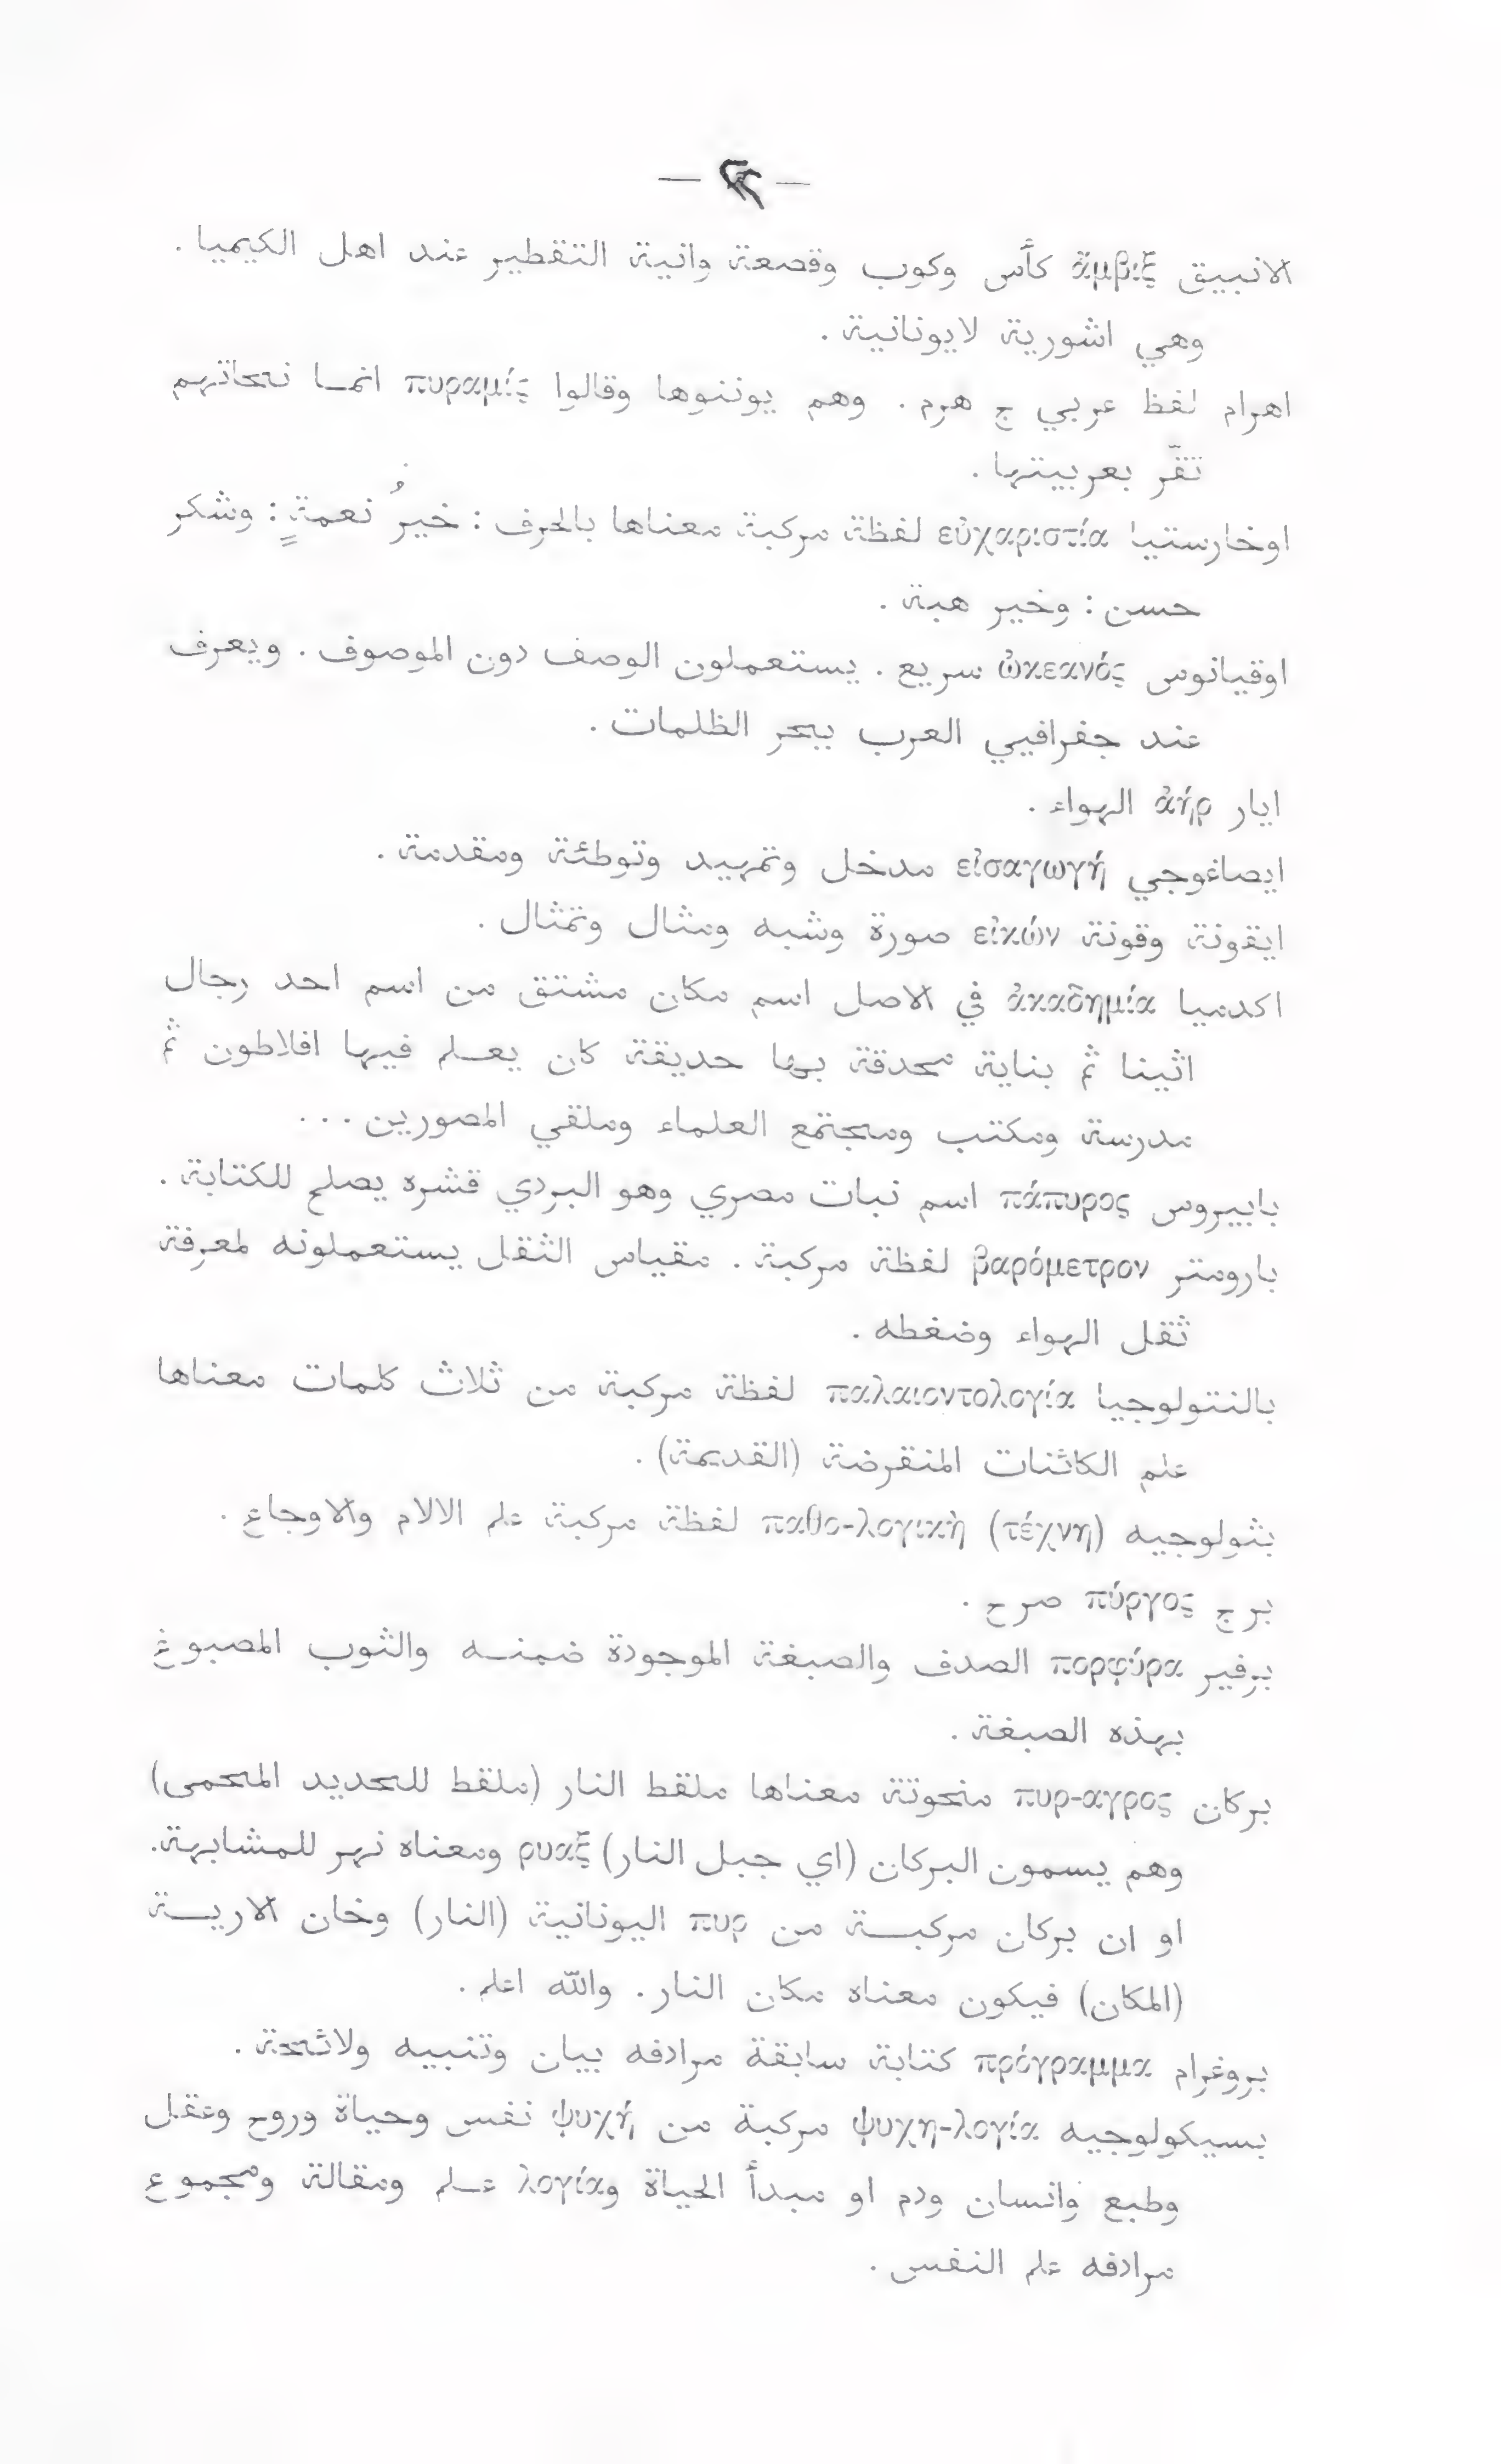 الانبيق ἄμβιξ كأس وكوب وقصعة وانية التقطير عند اهل الكيميا .
وهي اشورية لايونانية .
اهرام لفظ عربي ج هرم . وهم يوننوها وقالوا πυραμίς انما نحاتهم
تقّر بعربيتها .
اوخارستيا εὐχαριστία لفظة مركبة معناها بالحرف : خيرُ نعمةٍ : وشكر
حسن : وخير هبة .
اوقيانوس ὠκεανός سريع . يستعملون الوصف دون الموصوف . ويعرف
عند جغرافيي العرب ببحر الظلمات .
ايار ἀήρ الهواء .
ايصاغوجي εἰσαγωγή مدخل وتمهيد وتوطئة ومقدمة .
ايقونة وقونة εἰκών صورة وشبه ومثال وتمثال .
اكدميا ἀκαδημία في الاصل اسم مكان مشتق من اسم احد رجال
اثينا ثم بناية محدقة بها حديقة كان يعلم فيها افلاطون ثم
مدرسة ومكتب ومجتمع العلماء وملقي المصورين ...
بابيروس πάπυρος اسم نبات مصري وهو البردي قشره يصلح للكتابة .
بارومتر βαρόμετρον لفظة مركبة . مقياس الثقل يستعملونه لمعرفة
ثقل الهواء وضغطه .
بالنتولوجيا παλαιοντολογία لفظة مركبة من ثلاث كلمات معناها
علم الكائنات المنقرضة (القديمة) .
بثولوجيه παθο-λογικὴ (τέχνη) لفظة مركبة علم الالام والاوجاع .
برج πύργος صرح .
برفير πορφύρα الصدف والصبغة الموجودة ضمنه والثوب المصبوغ
بهذه الصبغة .
بركان πυρ-αγρος منحوتة معناها ملقط النار (ملقط للحديد المحمى)
وهم يسمون البركان (اي جبل النار) ρυαξ ومعناه نهر للمشابهة.
او ان بركان مركبة من πυρ اليونانية (النار) وخان الارية
(المكان) فيكون معناه مكان النار . والله اعلم .
بروغرام πρόγραμμα كتابة سابقة مرادفه بيان وتنبيه ولائحة .
بسيكولوجيه ψυχη-λογία مركبة من ψυχή نفس وحياة وروح وعقل
وطبع وانسان ودم او مبدأ الحياة وλογία علم ومقالة ومجموع
مرادفه علم النفس .